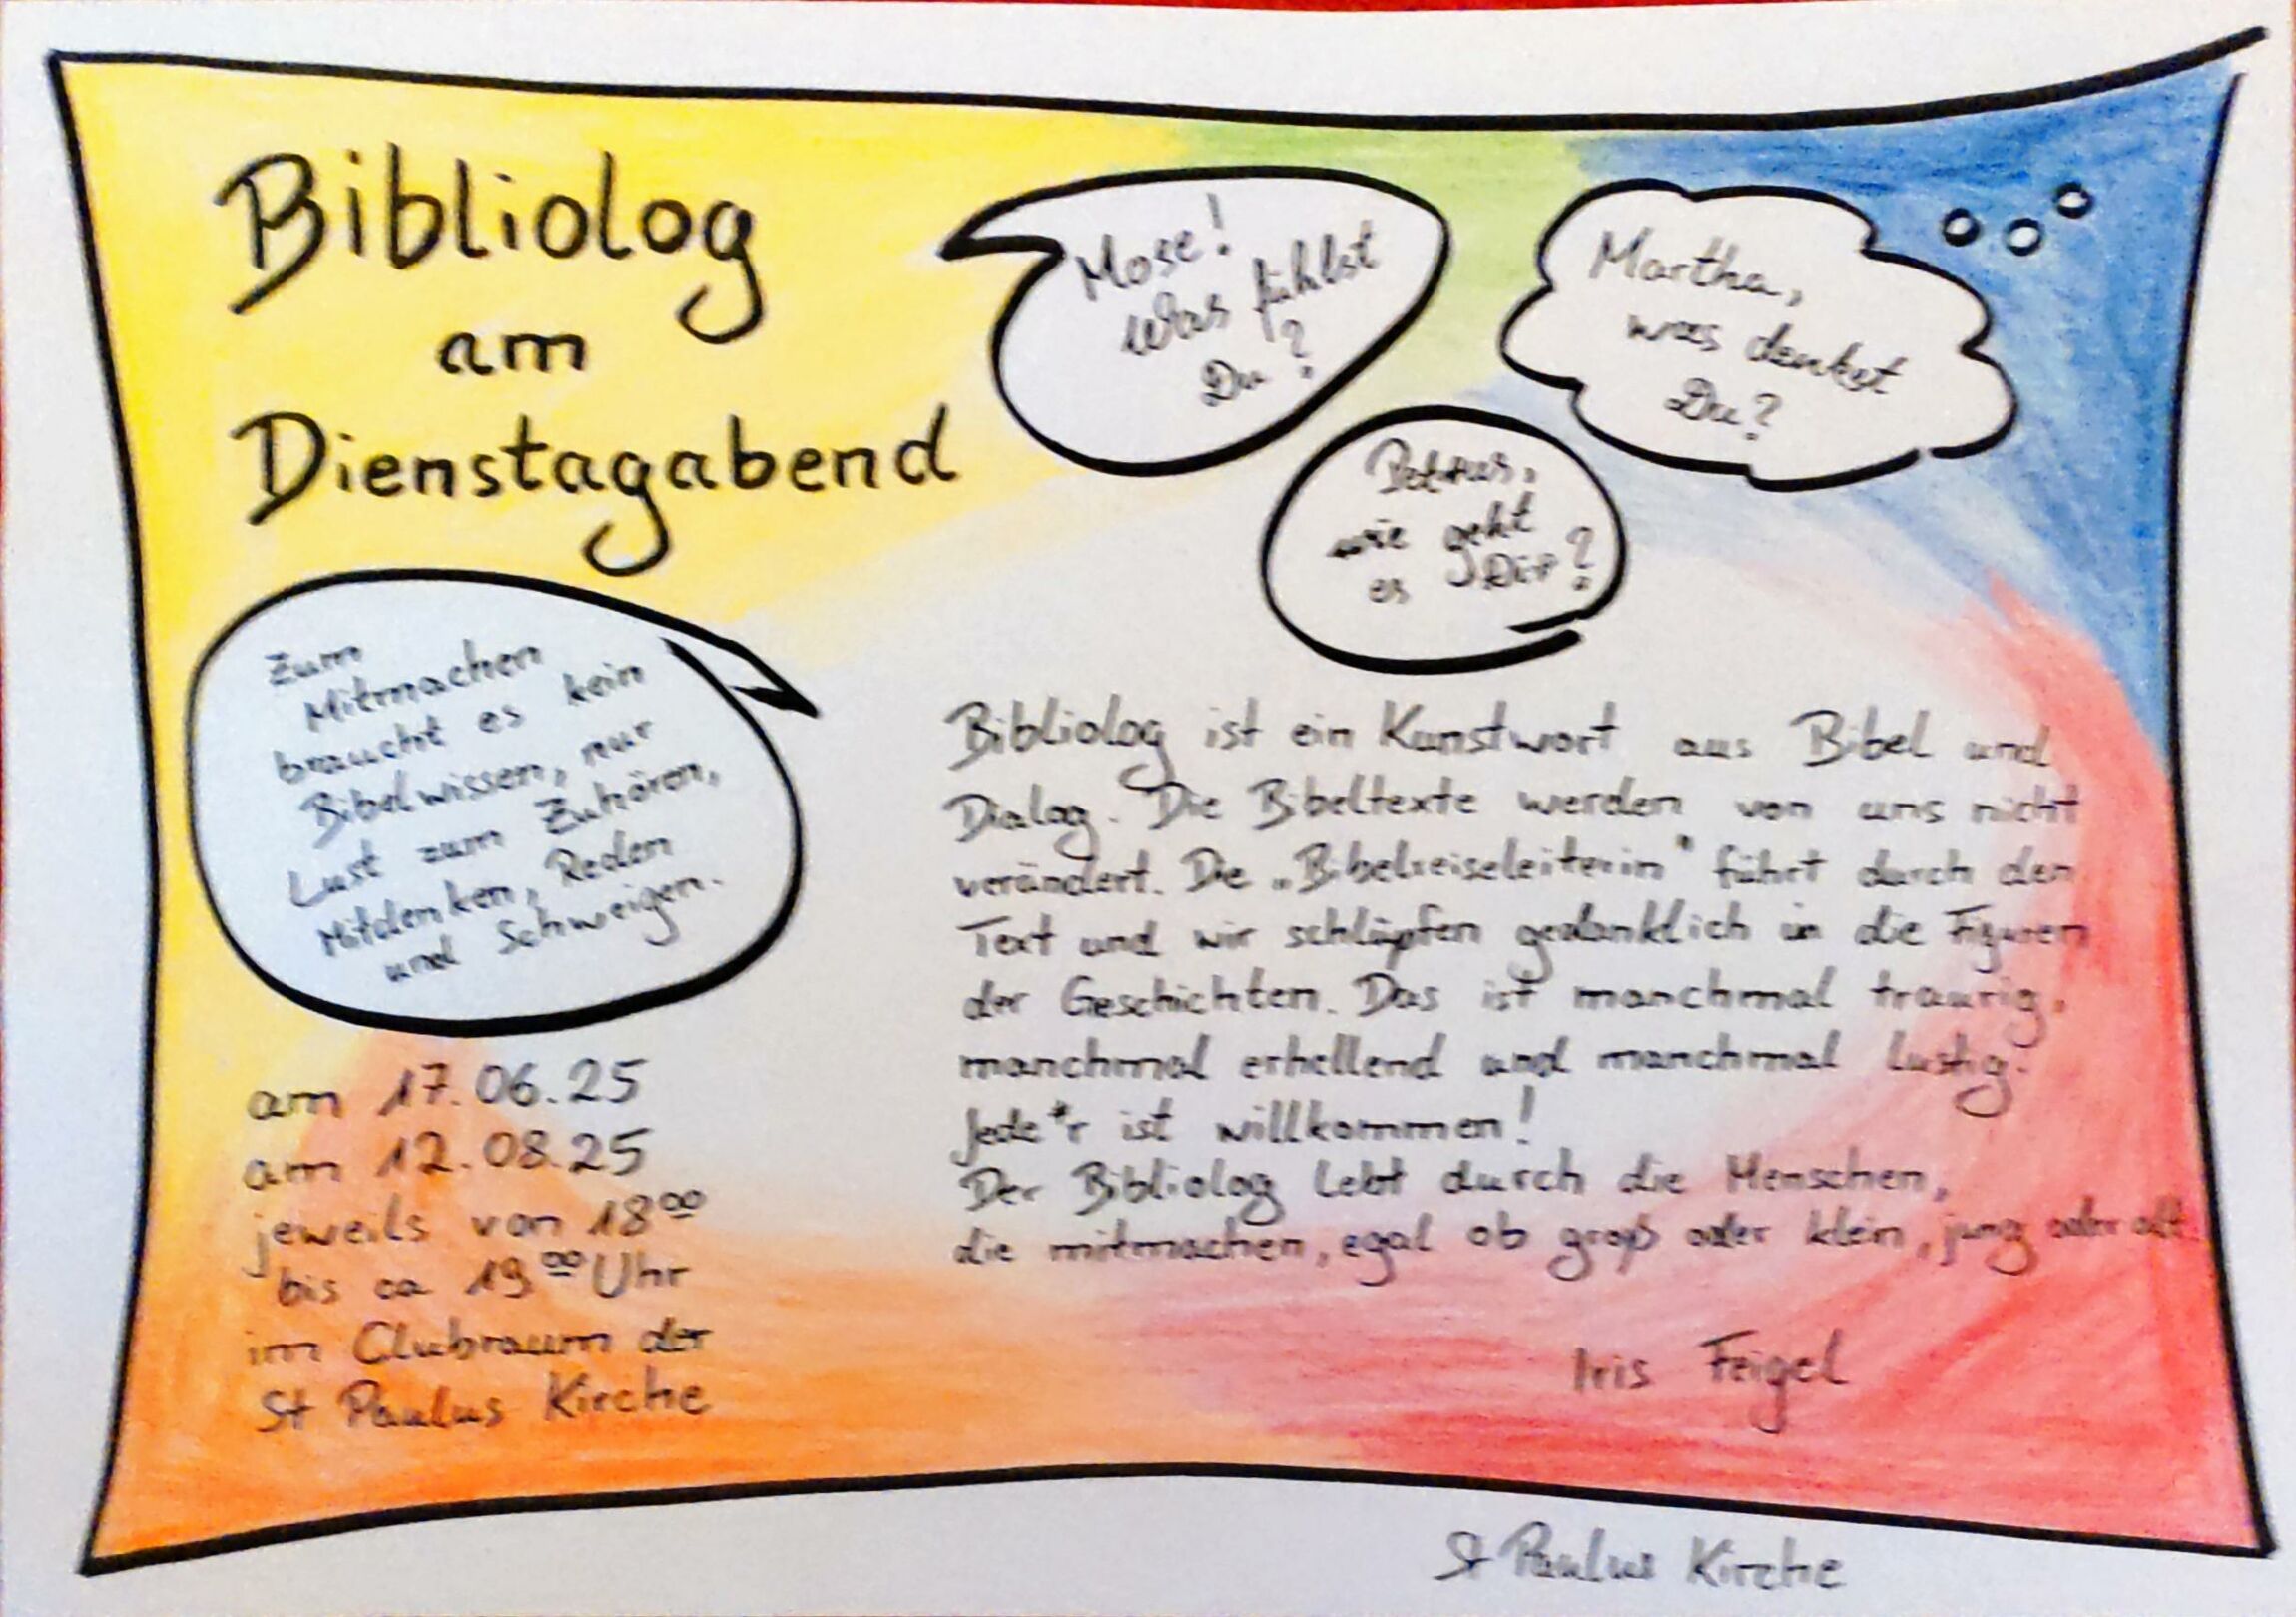 Bibliolog
am
Dienstagabend
Mose!
Was fühlst
Du?
Martha,
was denkst
Du?
Petrus,
wie geht
es Dir?
Zum
Mitmachen
braucht es kein
Bibelwissen, nur
Lust zum Zuhören,
Mitdenken, Reden
und Schweigen.
am 17.06.25
am 12.08.25
jeweils von 18⁰⁰
bis ca 19⁰⁰ Uhr
im Clubraum der
St Paulus Kirche
Bibliolog ist ein Kunstwort aus Bibel und
Dialog. Die Bibeltexte werden von uns nicht
verändert. Die „Bibelreiseleiterin" führt durch den
Text und wir schlüpfen gedanklich in die Figuren
der Geschichten. Das ist manchmal traurig,
manchmal erhellend und manchmal lustig.
Jede*r ist willkommen!
Der Bibliolog lebt durch die Menschen,
die mitmachen, egal ob groß oder klein, jung oder alt.
Iris Feigel
St Paulus Kirche